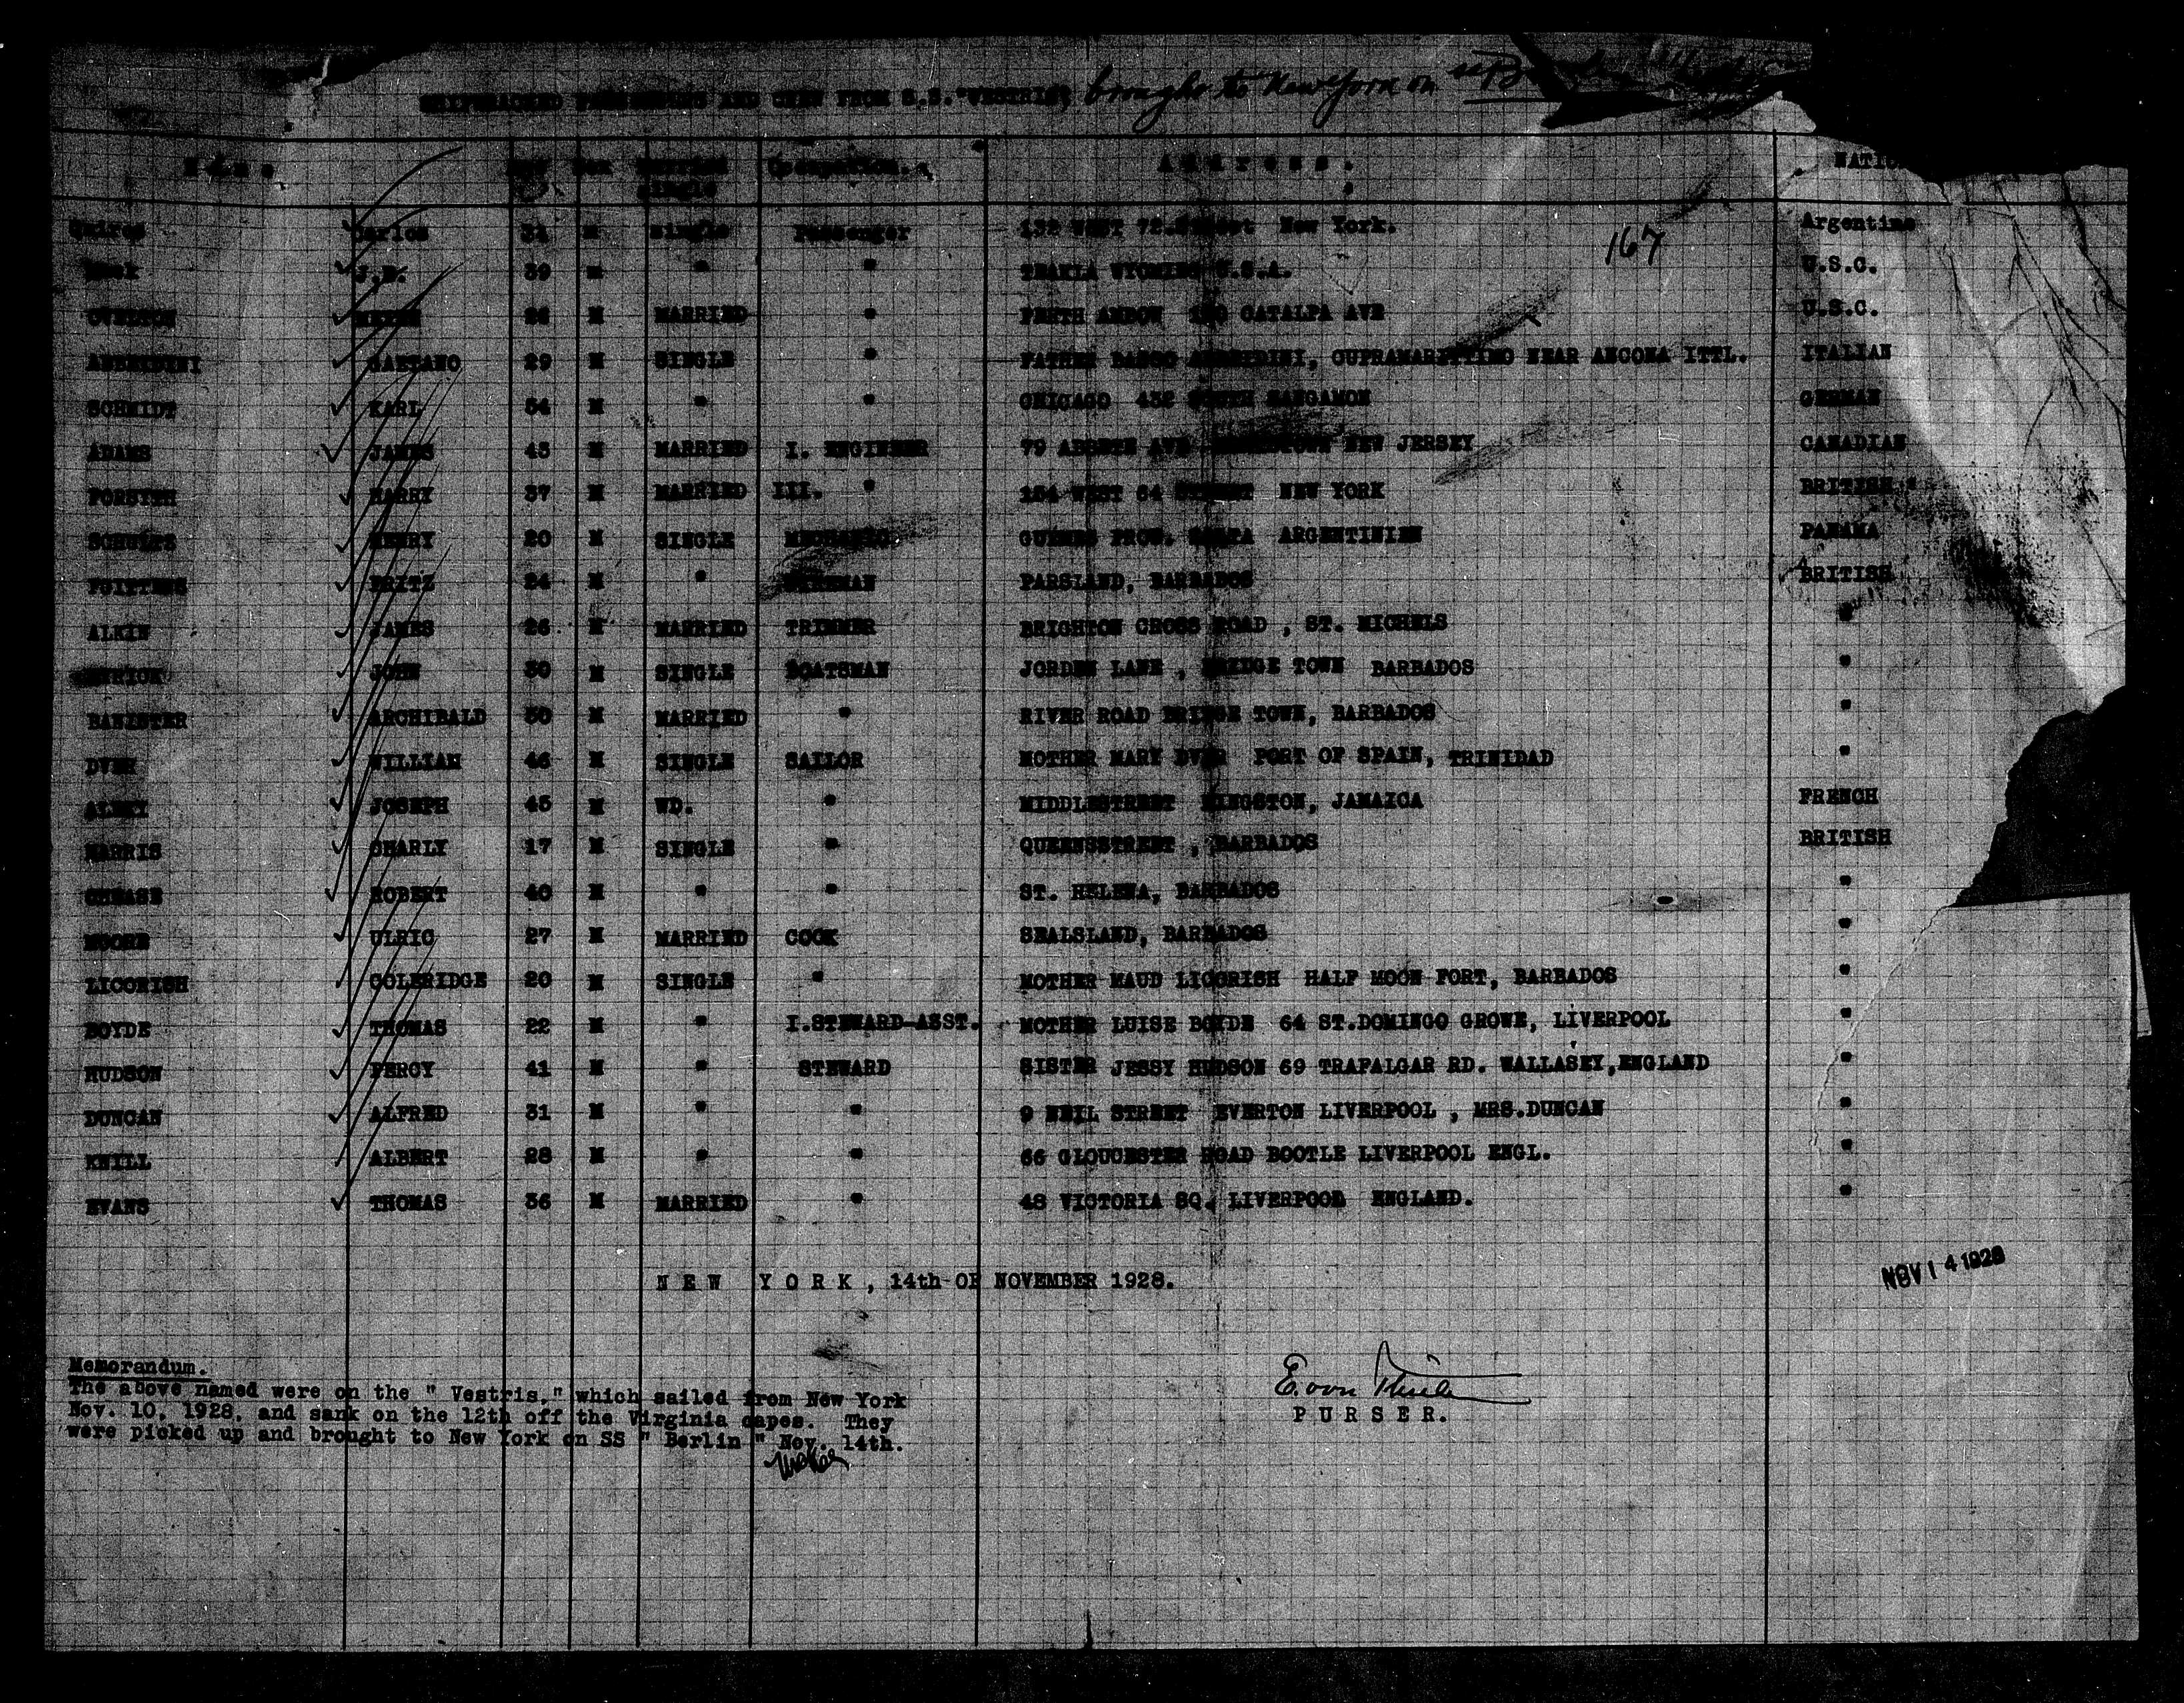 SHIPWRECKED PASSENGERS AND CREW FROM S.S. "VESTRIS" brought to New York on
Name. Age Sex Married Occupation. Address. NATIO
single
Quiros Carlos 34 m single Passenger 132 WEST 72.Street New York. Argentine
167
J.B. 39 m " " WYOMING U.S.A. U.S.C.
OVERTON 26 M MARRIED " PERTH AMBOY CATALPA AVE U.S.C.
GAETANO 29 M SINGLE " FATHER CUPRAMARITTIMO NEAR ANCONA ITTL. ITALIAN
SCHMIDT KARL 34 M " " CHICAGO 432 SANGAMON GERMAN
ADAMS JAMES 45 M MARRIED I. ENGINEER 79 AVE NEW JERSEY CANADIAN
FORSYTH HARRY 37 M MARRIED III. " 164 WEST 84 STREET NEW YORK BRITISH
HENRY 20 M SINGLE MECHANIC PROV. ARGENTINIEN PANAMA
FRITZ 24 M " FIREMAN PARSLAND, BARBADOS BRITISH
ALKIN JAMES 26 M MARRIED TRIMMER BRIGHTON CROSS ROAD , ST. MICHELS "
JOHN 30 M SINGLE BOATSMAN JORDEN LANE , BRIDGE TOWN BARBADOS "
BANISTER ARCHIBALD 30 M MARRIED " RIVER ROAD BRIDGE TOWN, BARBADOS "
WILLIAM 46 M SINGLE SAILOR MOTHER MARY PORT OF SPAIN, TRINIDAD "
JOSEPH 45 M WD. " MIDDLESTREET KINGSTON, JAMAICA FRENCH
HARRIS CHARLY 17 M SINGLE " QUEENSSTREET , BARBADOS BRITISH
CHEASE ROBERT 40 M " " ST. HELENA, BARBADOS "
MOORE ULRIC 27 M MARRIED COOK SEALSLAND, BARBADOS "
LICORISH COLERIDGE 20 M SINGLE " MOTHER MAUD LICORISH HALF MOON FORT, BARBADOS "
BOYDE THOMAS 22 M " I.STEWARD-ASST. MOTHER LUISE BOYDE 64 ST.DOMINGO GROWE, LIVERPOOL "
HUDSON PERCY 41 M " STEWARD SISTER JESSY HUDSON 69 TRAFALGAR RD. WALLASEY,ENGLAND "
DUNCAN ALFRED 31 M " " 9 NEIL STREET EVERTON LIVERPOOL , MRS.DUNCAN "
KNILL ALBERT 28 M " " 66 GLOUCESTER ROAD BOOTLE LIVERPOOL ENGL. "
EVANS THOMAS 36 M MARRIED " 48 VICTORIA SQ. LIVERPOOL ENGLAND. "
NEW YORK, 14th OF NOVEMBER 1928.
NOV 14 1928
Memorandum.
The above named were on the " Vestris," which sailed from New York
Nov. 10, 1928, and sank on the 12th off the Virginia capes. They
were picked up and brought to New York on SS " Berlin " Nov. 14th.
PURSER.